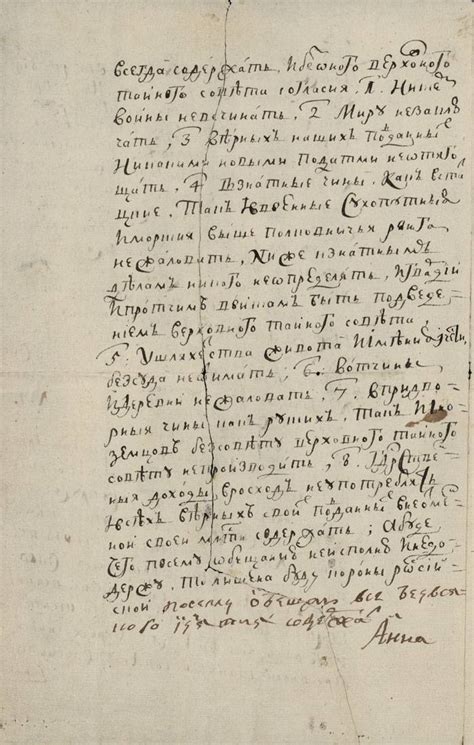 всегда содержать, И без оного верховного
тайного совѣта согласия. 1, Нискемъ
войны невсчинать, 2 Миру незаклю
чать, 3 вѣрныхъ нашихъ подданныхъ
Никакими новыми податми неотяго
щать, 4 Взнатные чины, какъ вста
цкие, такъ Ивоенные Сухопутныя
Иморския выше полковничья ранга
нежаловать, Ниже кзнатнымъ
дѣламъ никого неопределять, Игвардий
Ипротчимъ войскамъ быть подведе
ниемъ верховного тайного совѣта
5, Ушляхетства живота Иимения Ичести
безсуда неотимать; 6, вотчины
Идеревни нежаловать, 7, впридво
рныя чины какъ руских, такъ Ино
земцовъ безсовѣту верховного тайного
совѣту непроизводить, 8, Гдрственныя
доходы врасходъ неупотреблять
Ивсѣхъ вѣрныхъ своих подданных внеотме
нной своей млсти содержать; Абуде
чего посему обещанию неисполню Инедо
держу, то лишена буду короны россий
ской посему обещаю все безвся
кого изятия содержать
Анна